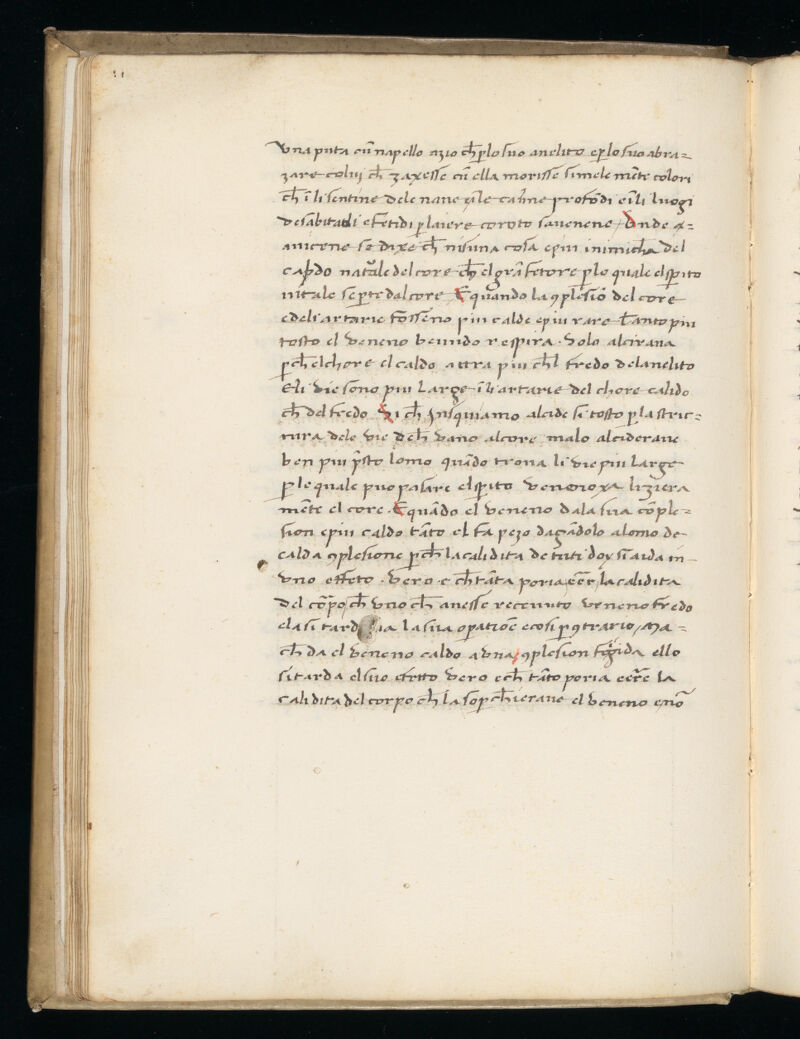 una puta cũ napello azio ch̃ p lo suo anelito e p lo suo abra=
zare coluj ch̃ zaxesse cũ ella morisse simele mẽte colori
ch̃ ĩ li sentine dele nave e ĩ le caũne profõdi e ĩ li luogi
desabitadi e fetidi p laiere coroto savenene / Onde a=
uicene se dixe ch̃ nisuna cosa e piu inimicha del
caldo natũale del core ch̃ el grã fetore p lo quale el spirito
uitale se parte dal core E quando la ꝯplesiõ del core
e de li artarie fosseno piu calde e piu rare tanto piu
tosto el veneno beuudo respira · Volo alcirana
p ch̃ el chore el caldo atira piu ch̃ l fredo delanelito
E li vie sono piu large ĩ li artarie del chore calido
ch̃ del fredo Si ch̃ Jusquiamo alcide si tosto p la stric=
tura dele vie de ch̃ vano al core malo alciderave
ben piu p̃sto lomo quãdo trova li vie piu large
p le quale puo pasare el spirito venenoxa lizera
mẽte el core · E quãdo el veneno dala sua cõple=
sion e piu caldo tãto el fa pezo dagãdolo a lomo de
calda ꝯplesione p ch̃ la calidita de tuti doy si aida in
uno effeto · vero e ch̃ tãta poria eer̃e la calidita
del corpo ch̃ uno ch̃ avesse recevuto veneno fredo
ela si tardaria la sua opatiõe e cosi p ꝯtrario / Ma =
ch̃ da el veneno caldo a una ꝯplesion frigida ello
si tarda el suo efeto vero e ch̃ tãto poria eer̃e la
calidita del corpo ch̃ la sopch̃ierave el veneno e nõ